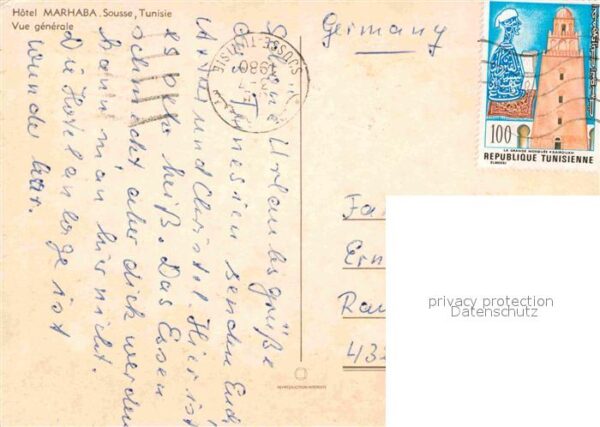 Hôtel MARHABA. Sousse, Tunisie
Vue générale
Germany
SOUSSE TUNISIE
1980
100
LA GRANDE MOSQUÉE-KAIROUAN
REPUBLIQUE TUNISIENNE
ELMEKKI
Schöne Urlaubsgrüße
aus Tunesien senden Euch
und Christel. Hier ist
es sehr heiß. Das Essen
schmeckt aber dick werden
kann man hier nicht.
Die Hotelanlage ist
wunderbar.
Fa
Ern
Rau
432
privacy protection
Datenschutz
REPRODUCTION INTERDITE